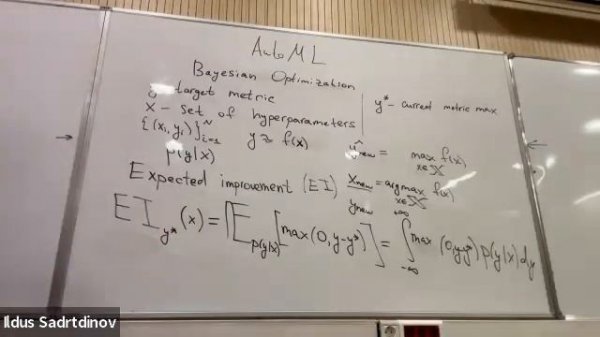 AutoML
Bayesian Optimization
y target metric
x - set of hyperparameters
{(xᵢ, yᵢ)}ᴺᵢ₌₁ y ≈ f(x)
p(y|x)
y* - current metric max
ŷnew = max f(x)
x∈X
Expected improvement (EI)
xnew = argmax f(x)
x∈X
ynew
EI_y*(x) = E_p(y|x)[max(0, y-y*)] = ∫₋∞^+∞ max (0, y-y*) p(y|x) dy
Ildus Sadrtdinov